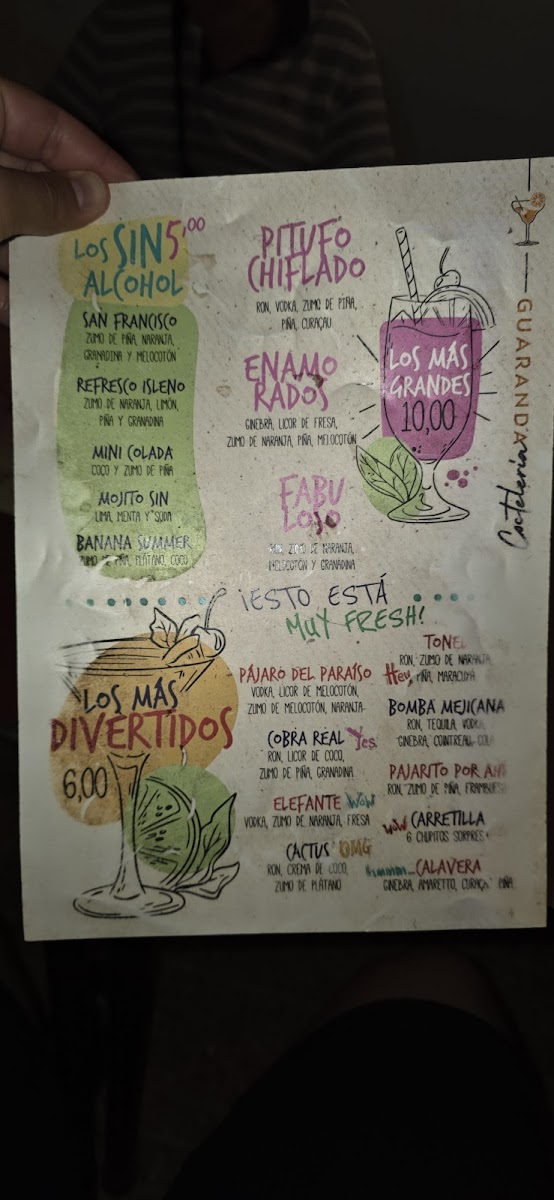 LOS SIN 5,00
ALCOHOL
SAN FRANCISCO
ZUMO DE PIÑA, NARANJA,
GRANADINA Y MELOCOTÓN
REFRESCO ISLENO
ZUMO DE NARANJA, LIMÓN,
PIÑA Y GRANADINA
MINI COLADA
COCO Y ZUMO DE PIÑA
MOJITO SIN
LIMA, MENTA Y SODA
BANANA SUMMER
ZUMO DE PIÑA, PLÁTANO, COCO
PITUFO
CHIFLADO
RON, VODKA, ZUMO DE PIÑA,
PIÑA, CURAÇAU
ENAMO
RADOS
GINEBRA, LICOR DE FRESA,
ZUMO DE NARANJA, PIÑA, MELOCOTÓN
FABU
LOSO
RON, ZUMO DE NARANJA,
MELOCOTÓN Y GRANADINA
LOS MÁS
GRANDES
10,00
GUARANDA
Coctelería
¡ESTO ESTÁ
MUY FRESH!
LOS MÁS
DIVERTIDOS
6,00
PÁJARO DEL PARAÍSO
VODKA, LICOR DE MELOCOTÓN,
ZUMO DE MELOCOTÓN, NARANJA
COBRA REAL Yes
RON, LICOR DE COCO,
ZUMO DE PIÑA, GRANADINA
ELEFANTE WOW
VODKA, ZUMO DE NARANJA, FRESA
CACTUS OMG
RON, CREMA DE COCO,
ZUMO DE PLÁTANO
TONEL
RON, ZUMO DE NARANJA,
Hey, PIÑA, MARACUYA
BOMBA MEJICANA
RON, TEQUILA, VODKA,
GINEBRA, COINTREAU, COLA
PAJARITO POR
RON, ZUMO DE PIÑA,
WOW CARRETILLA
6 CHUPITOS
CALAVERA
GINEBRA, AMARETTO, PIÑA